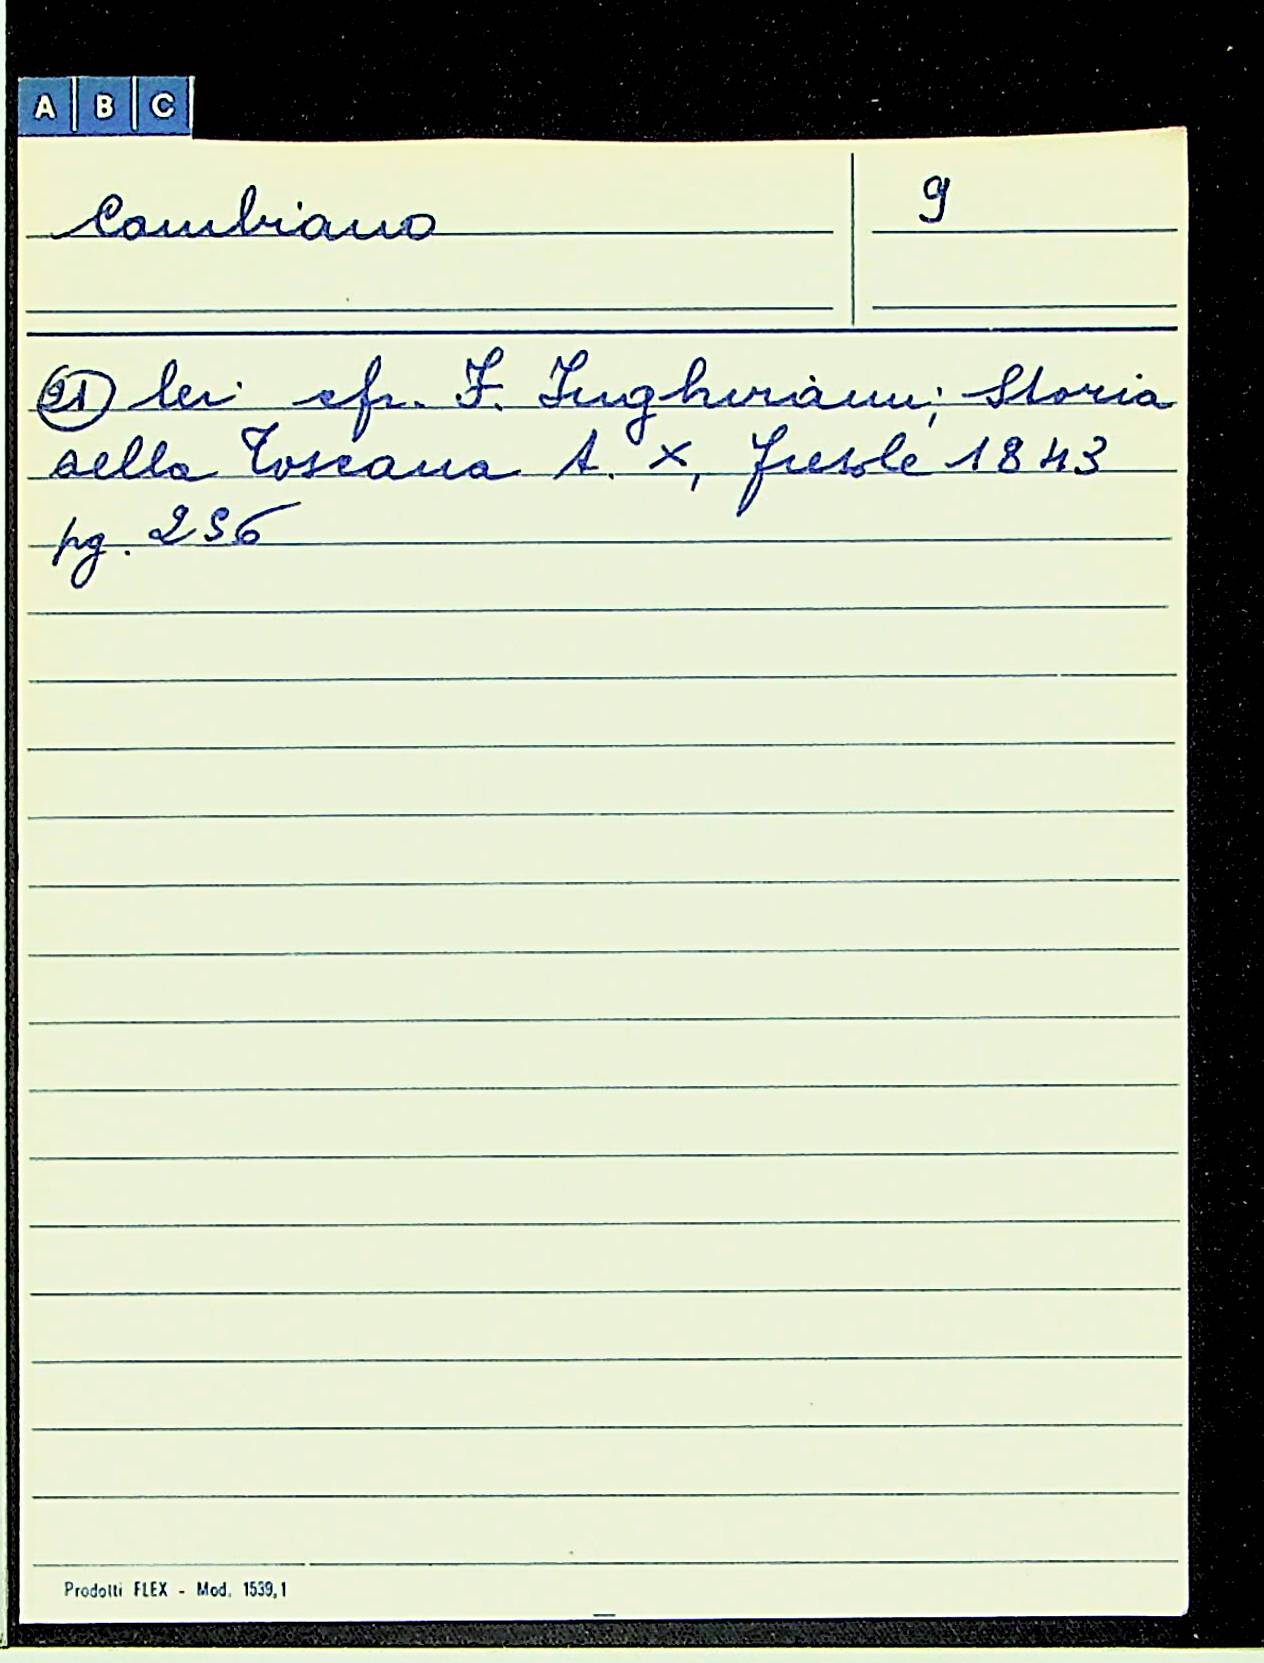 A B C
Cambiano
9
21) lei cfr. F. Inghirami; Storia
della Toscana t. X, Fiesole 1843
pg. 256
Prodotti FLEX - Mod. 1539,1